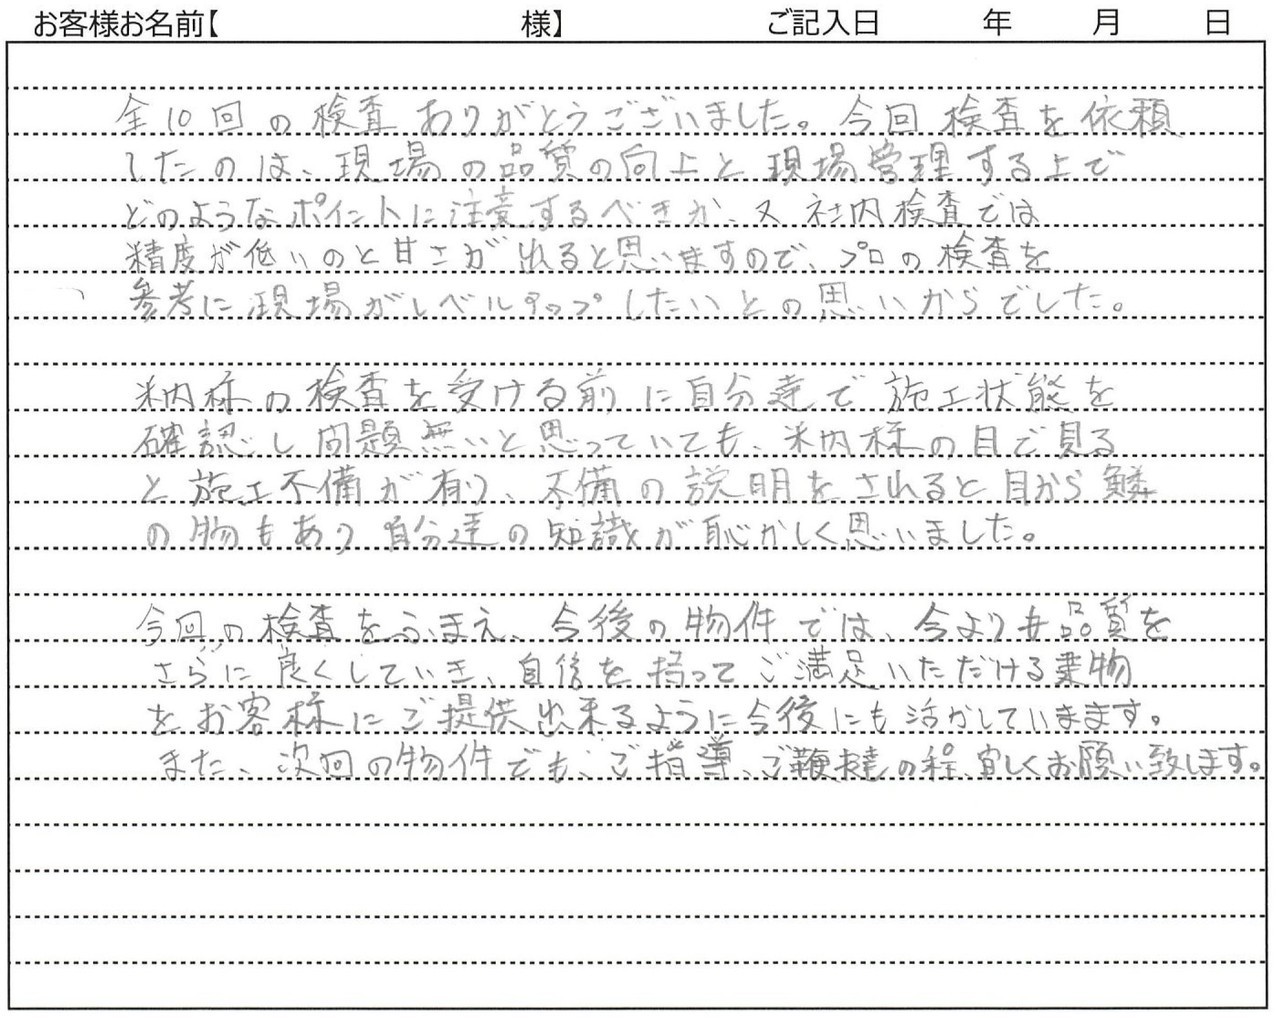 お客様お名前【 様】 ご記入日 年 月 日
全10回の検査ありがとうございました。今回検査を依頼
したのは、現場の品質の向上と現場管理する上で
どのようなポイントに注意するべきか、又社内検査では
精度が低いのと甘さが出ると思いますので、プロの検査を
参考に現場がレベルアップしたいとの思いからでした。
米内様の検査を受ける前に自分達で施工状態を
確認し問題無いと思っていても、米内様の目で見る
と施工不備が有り、不備の説明をされると目から鱗
の物もあり自分達の知識が恥かしく思いました。
今回の検査をふまえ、今後の物件では、今よりも品質を
さらに良くしていき、自信を持ってご満足いただける建物
をお客様にご提供出来るように今後にも活かしていきます。
また、次回の物件でも、ご指導、ご鞭撻の程、宜しくお願い致します。